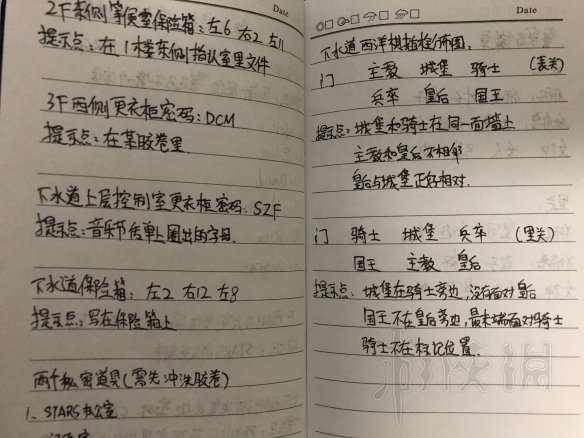 Date
2F东侧等候室保险箱：左6 右2 左11
提示点：在1楼东侧接待室里文件
3F西侧更衣柜密码：DCM
提示点：在某胶卷里
下水道上层控制室更衣柜密码：SZF
提示点：音乐节传单上圈出的字母.
下水道保险箱：左2 右12 左8
提示点：写在保险箱上
两个秘密道具(需先冲洗胶卷)
1、STARS办公室
Date
下水道西洋棋插栓听图：
门 主教 城堡 骑士 (表关)
兵卒 皇后 国王
提示点：城堡和骑士在同一面墙上
主教和皇后不相邻
皇后与城堡正好相对.
门 骑士 城堡 兵卒 (里关)
国王 主教 皇后
提示点：城堡在骑士旁边，没有面对皇后
国王不在皇后旁边，最末端面对骑士
骑士不在标记位置.